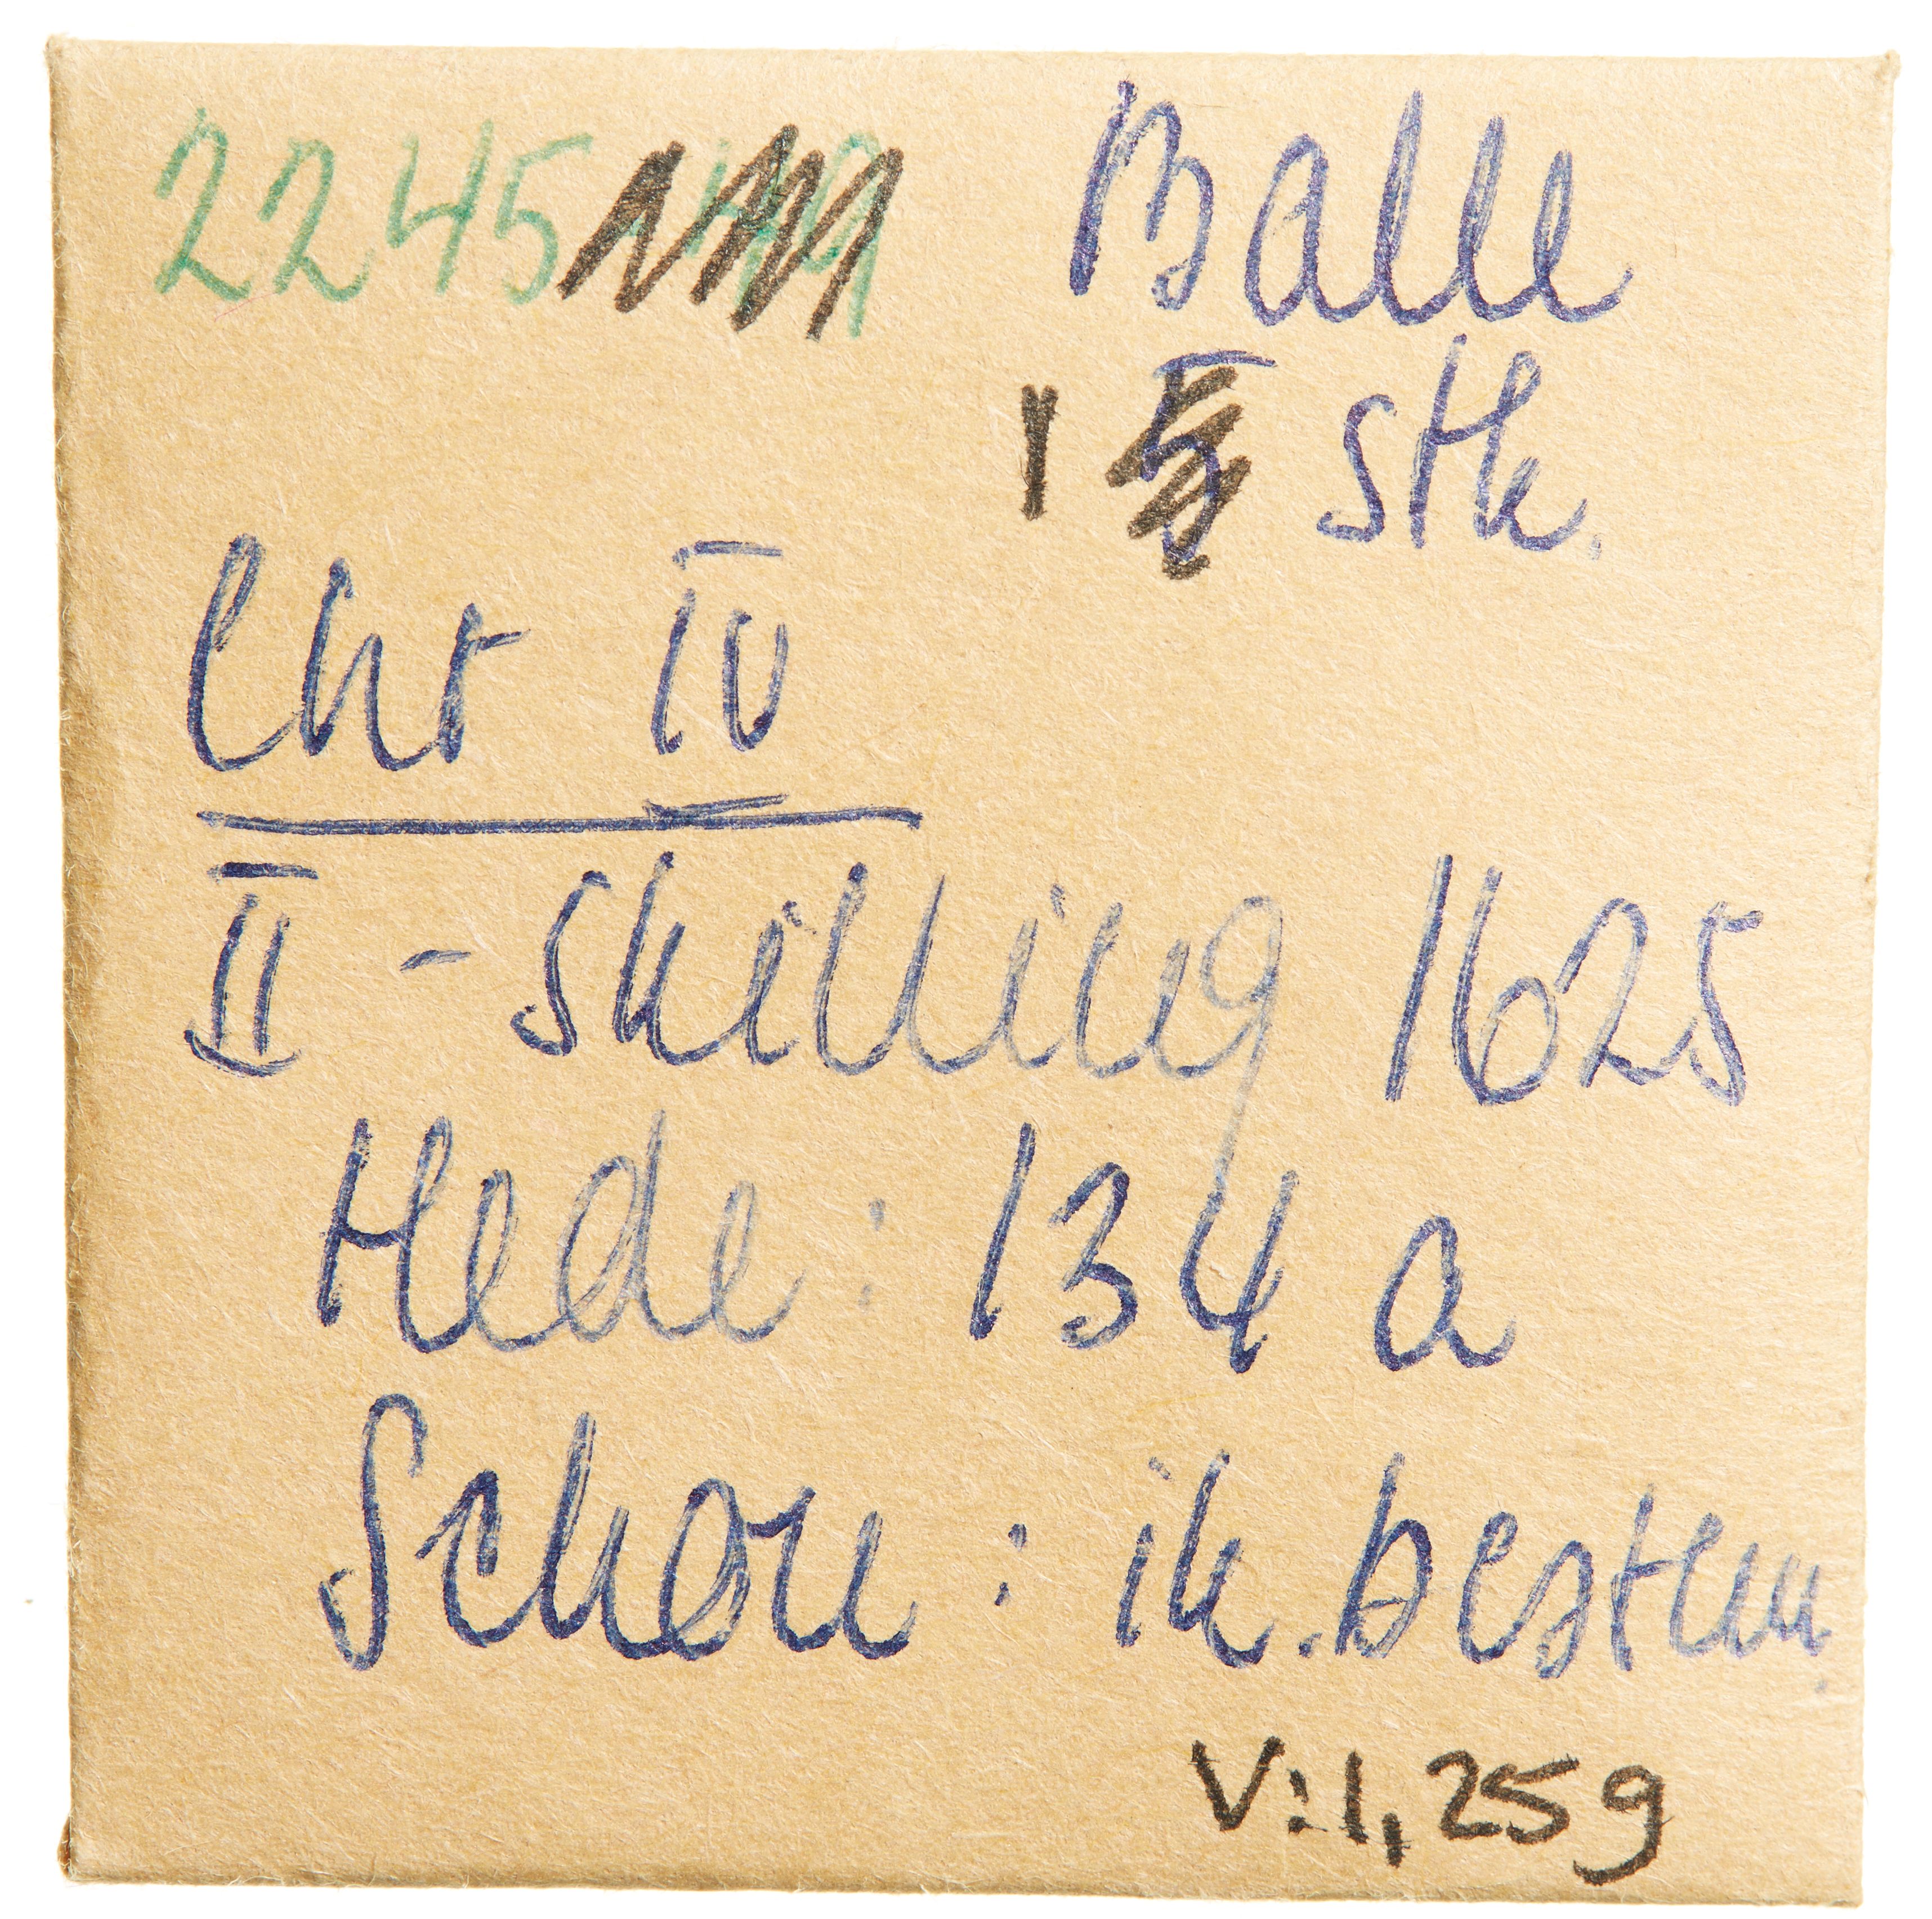 2245 Balle
1 stk.
Chr IV
II - skilling 1625
Hede: 134 a
Schou: ik. bestem.
V: 1,25 g